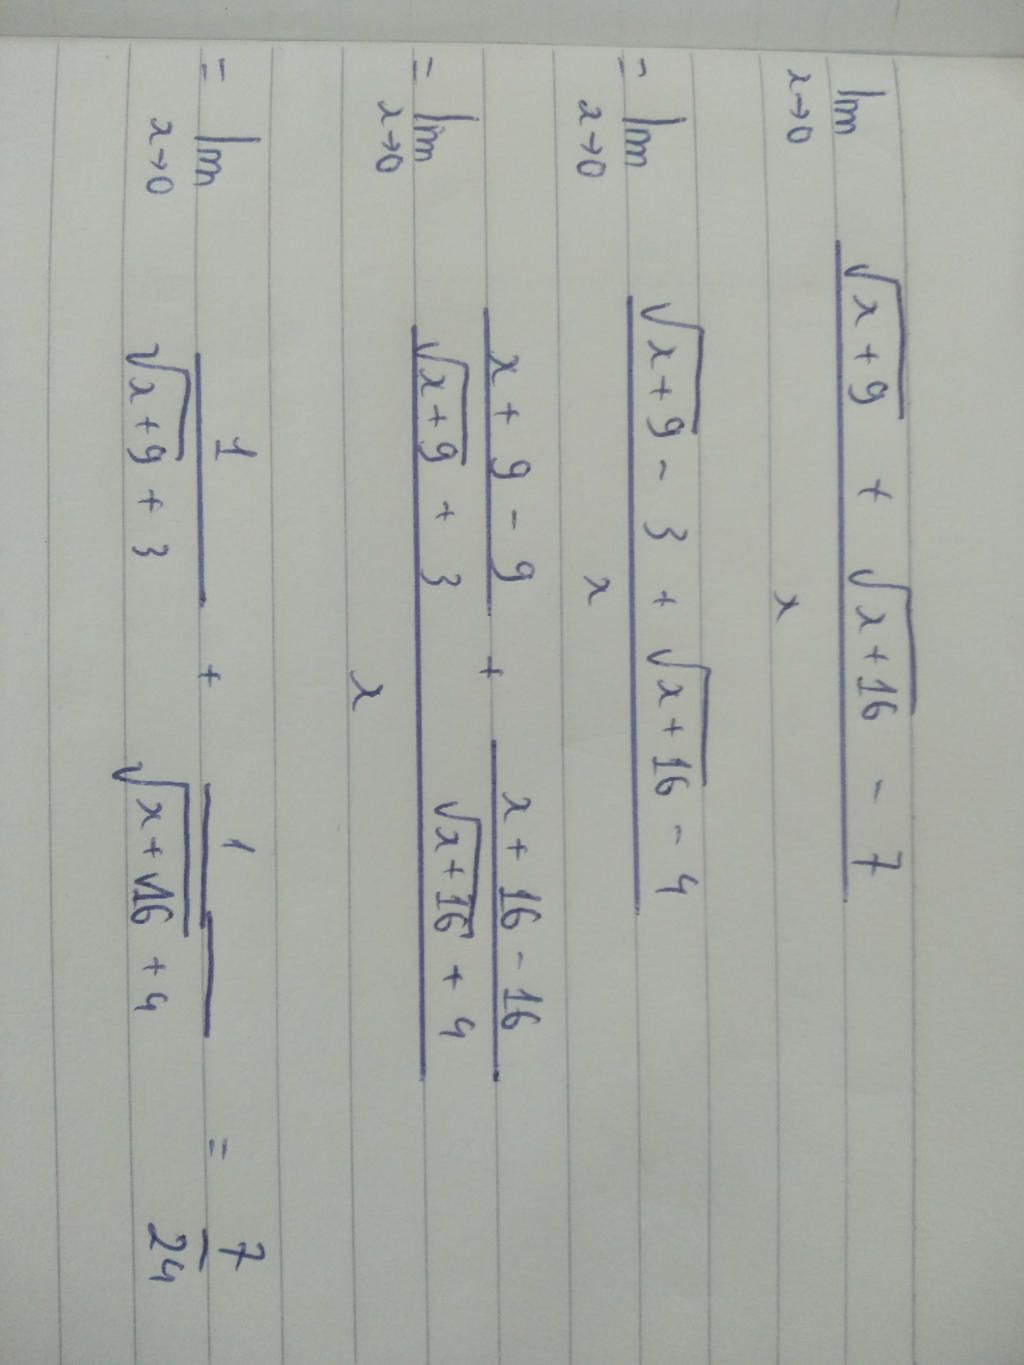 lim x→0 (√(x+9) + √(x+16) - 7) / x
= lim x→0 (√(x+9) - 3 + √(x+16) - 4) / x
= lim x→0 ((x+9-9) / (√(x+9) + 3) + (x+16-16) / (√(x+16) + 4)) / x
= lim x→0 1 / (√(x+9) + 3) + 1 / (√(x+16) + 4) = 7/24